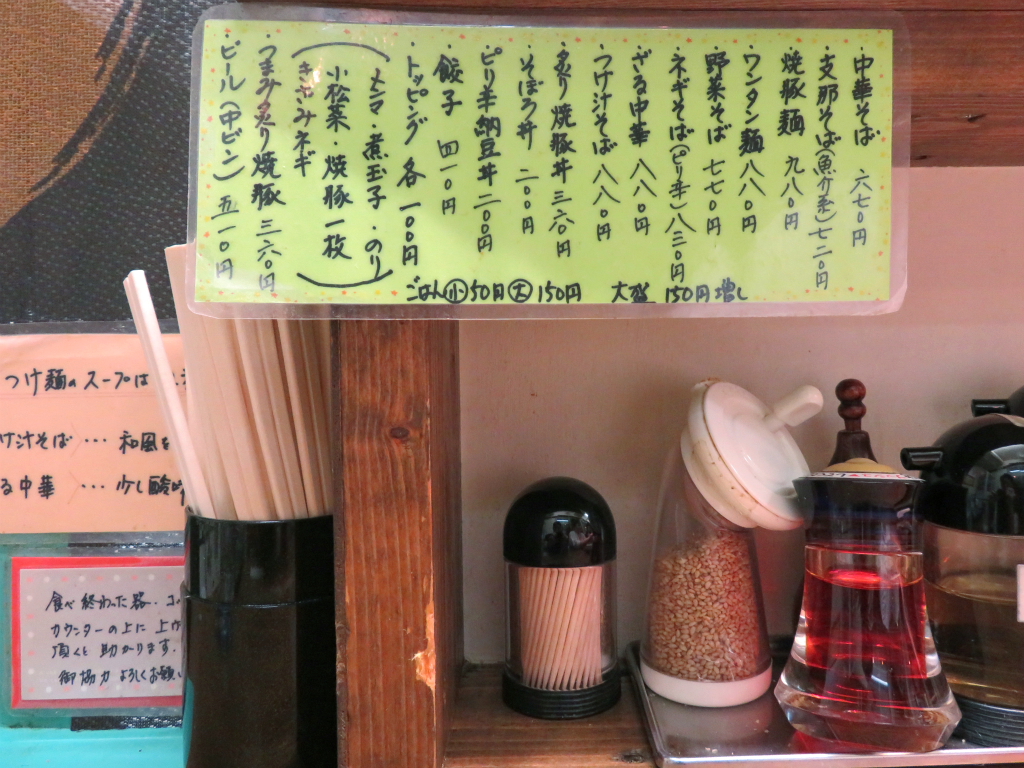 ・中華そば 六七〇円
・支那そば(魚介系)七二〇円
・焼豚麺 九八〇円
・ワンタン麺 八八〇円
・野菜そば 七七〇円
・ネギそば(ピリ辛)八二〇円
・ざる中華 八八〇円
・つけ汁そば 八八〇円
・炙り焼豚丼 三六〇円
・そぼろ丼 二〇〇円
・ピリ辛納豆丼 二〇〇円
・餃子 四一〇円
・トッピング 各一〇〇円
(メンマ・煮玉子・のり
小松菜・焼豚一枚
きざみネギ)
・つまみ炙り焼豚 三六〇円
・ビール(中ビン) 五一〇円
ごはん小50円大150円 大盛 150円増し
つけ麺のスープは
け汁そば … 和風
る中華 … 少し酸味
食べ終わった器、コ
カウンターの上に上げ
頂くと助かります。
御協力よろしくお願い